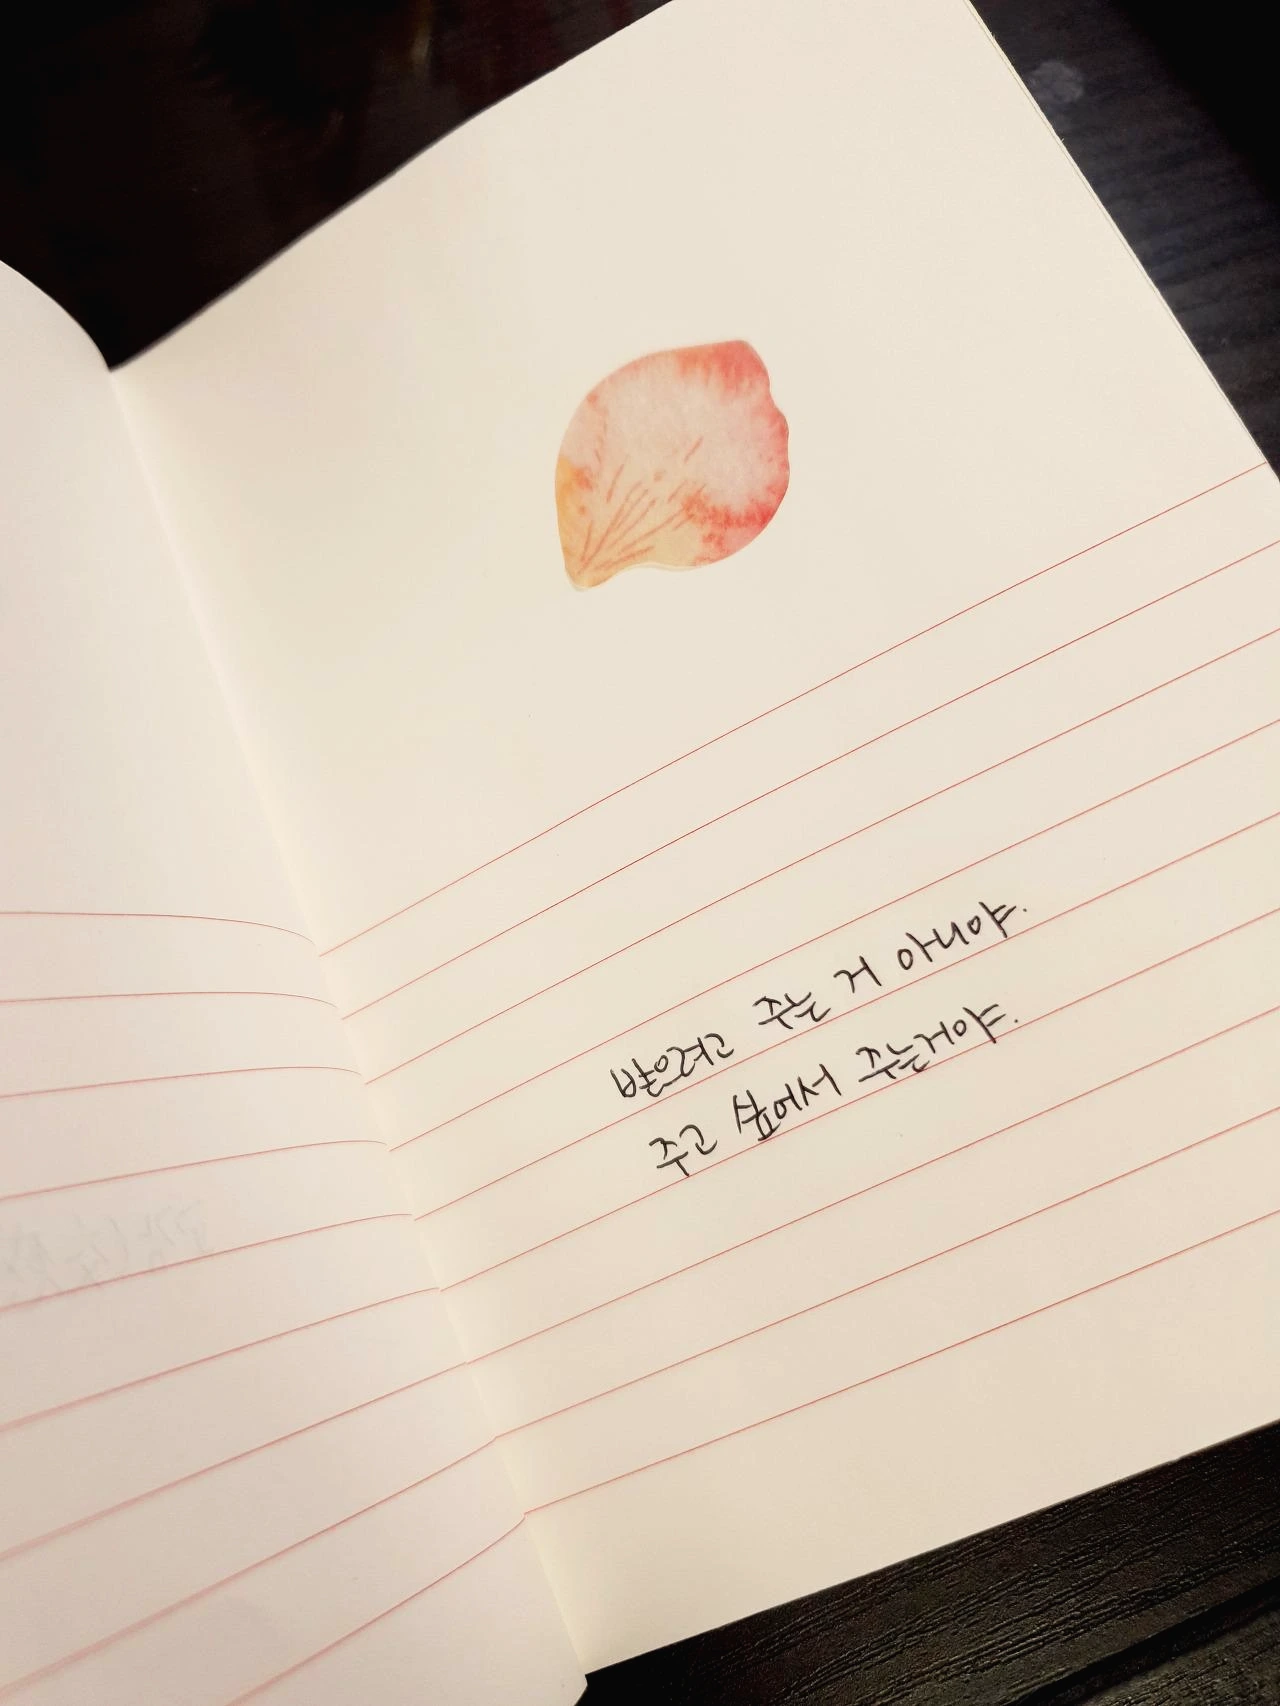 받으려고 주는 거 아니야.
주고 싶어서 주는거야.